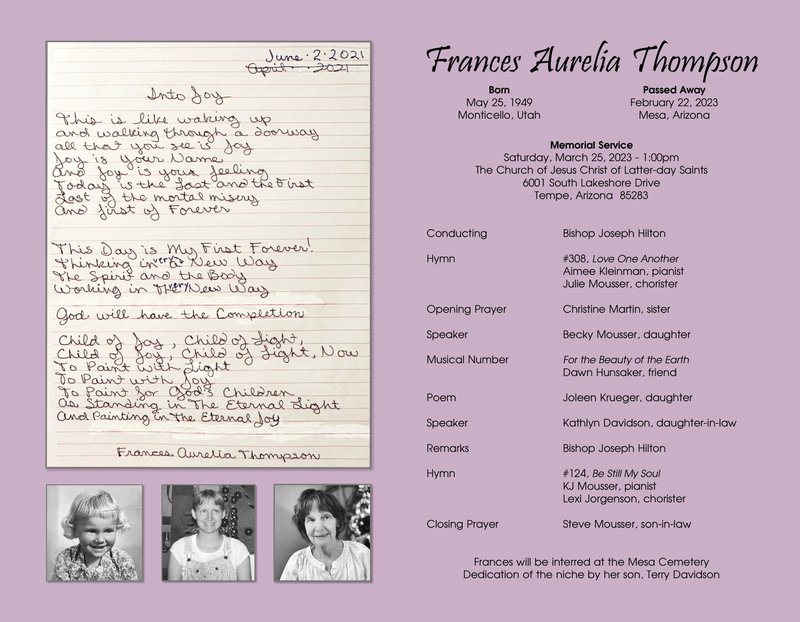 June · 2 · 2021
April · 2021
Into Joy
This is like waking up
and walking through a doorway
all that you see is Joy
Joy is Your Name
And Joy is your feeling
Today is the Last and the First
Last of the mortal misery
And first of Forever
This Day is My First Forever!
Thinking in a very New Way
The Spirit and the Body
Working in The very New Way
God will have the Completion
Child of Joy, Child of Light,
Child of Joy, Child of Light, Now
To Paint with Light
To Paint with Joy
To Paint for God's Children
As Standing in The Eternal Light
And Painting in The Eternal Joy
Frances Aurelia Thompson
Frances Aurelia Thompson
Born
May 25, 1949
Monticello, Utah
Passed Away
February 22, 2023
Mesa, Arizona
Memorial Service
Saturday, March 25, 2023 - 1:00pm
The Church of Jesus Christ of Latter-day Saints
6001 South Lakeshore Drive
Tempe, Arizona 85283
Conducting Bishop Joseph Hilton
Hymn #308, Love One Another
Aimee Kleinman, pianist
Julie Mousser, chorister
Opening Prayer Christine Martin, sister
Speaker Becky Mousser, daughter
Musical Number For the Beauty of the Earth
Dawn Hunsaker, friend
Poem Joleen Krueger, daughter
Speaker Kathlyn Davidson, daughter-in-law
Remarks Bishop Joseph Hilton
Hymn #124, Be Still My Soul
KJ Mousser, pianist
Lexi Jorgenson, chorister
Closing Prayer Steve Mousser, son-in-law
Frances will be interred at the Mesa Cemetery
Dedication of the niche by her son, Terry Davidson